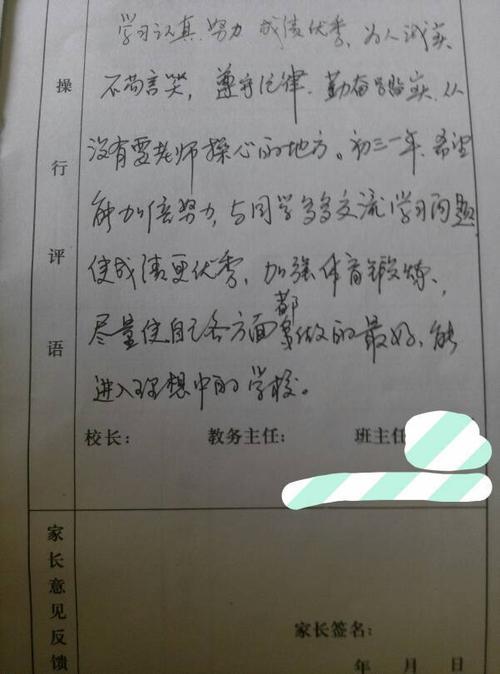 操行评语
学习认真努力 成绩优秀, 为人诚实
不苟言笑, 遵守纪律, 勤奋踏实, 从
没有要老师操心的地方。初三一年, 希望
能加倍努力, 与同学多多交流学习问题
使成绩更优秀, 加强体育锻炼,
尽量使自己各方面都做的最好, 能
进入理想中的学校。
校长: 教务主任: 班主任
家长意见反馈
家长签名:
年 月 日